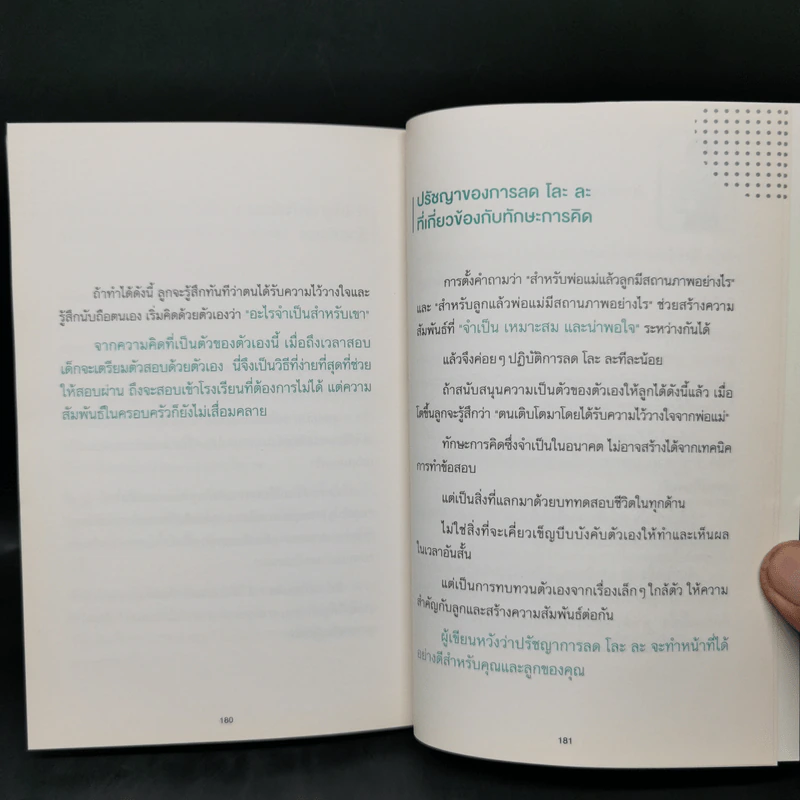 ถ้าทำได้ดังนี้ ลูกจะรู้สึกทันทีว่าตนได้รับความไว้วางใจและ
รู้สึกนับถือตนเอง เริ่มคิดด้วยตัวเองว่า "อะไรจำเป็นสำหรับเขา"
จากความคิดที่เป็นตัวของตัวเองนี้ เมื่อถึงเวลาสอบ
เด็กจะเตรียมตัวสอบด้วยตัวเอง นี่จึงเป็นวิธีที่ง่ายที่สุดที่ช่วย
ให้สอบผ่าน ถึงจะสอบเข้าโรงเรียนที่ต้องการไม่ได้ แต่ความ
สัมพันธ์ในครอบครัวก็ยังไม่เสื่อมคลาย
180
ปรัชญาของการลด โละ ละ
ที่เกี่ยวข้องกับทักษะการคิด
การตั้งคำถามว่า "สำหรับพ่อแม่แล้วลูกมีสถานภาพอย่างไร"
และ "สำหรับลูกแล้วพ่อแม่มีสถานภาพอย่างไร" ช่วยสร้างความ
สัมพันธ์ที่ "จำเป็น เหมาะสม และน่าพอใจ" ระหว่างกันได้
แล้วจึงค่อยๆ ปฏิบัติการลด โละ ละทีละน้อย
ถ้าสนับสนุนความเป็นตัวของตัวเองให้ลูกได้ดังนี้แล้ว เมื่อ
โตขึ้นลูกจะรู้สึกว่า "ตนเติบโตมาโดยได้รับความไว้วางใจจากพ่อแม่"
ทักษะการคิดซึ่งจำเป็นในอนาคต ไม่อาจสร้างได้จากเทคนิค
การทำข้อสอบ
แต่เป็นสิ่งที่แลกมาด้วยบททดสอบชีวิตในทุกด้าน
ไม่ใช่สิ่งที่จะเคี่ยวเข็ญบีบบังคับตัวเองให้ทำและเห็นผล
ในเวลาอันสั้น
แต่เป็นการทบทวนตัวเองจากเรื่องเล็กๆ ใกล้ตัว ให้ความ
สำคัญกับลูกและสร้างความสัมพันธ์ต่อกัน
ผู้เขียนหวังว่าปรัชญาการลด โละ ละ จะทำหน้าที่ได้
อย่างดีสำหรับคุณและลูกของคุณ
181